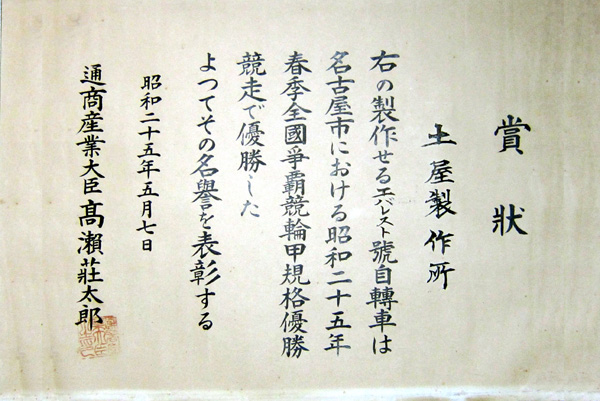 賞狀
土屋製作所
右の製作せるエバレスト號自轉車は
名古屋市における昭和二十五年
春季全國爭覇競輪甲規格優勝
競走で優勝した
よつてその名譽を表彰する
昭和二十五年五月七日
通商産業大臣髙瀨莊太郎